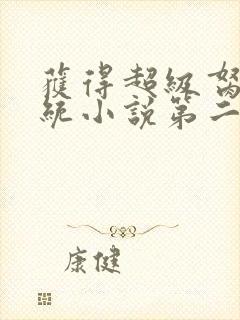 獲得超級
統小說第二
康健